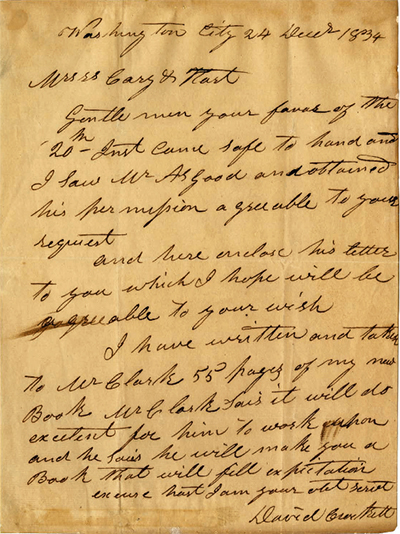 Washington City 24 Decr 1834
Messrs Cary & Hart
Gentlemen your favor of the
20th Inst Came safe to hand and
I Saw Mr Asgood and obtained
his permission agreable to your
request
and here enclose his letter
to you which I hope will be
agreeable to your wish
I have written and taken
to Mr Clark 55 pages of my new
Book Mr Clark Sais it will do
excelent for him to work upon
and he Sais he will make you a
Book that will fill expectation
excuse hast I am your obt servt
David Crockett